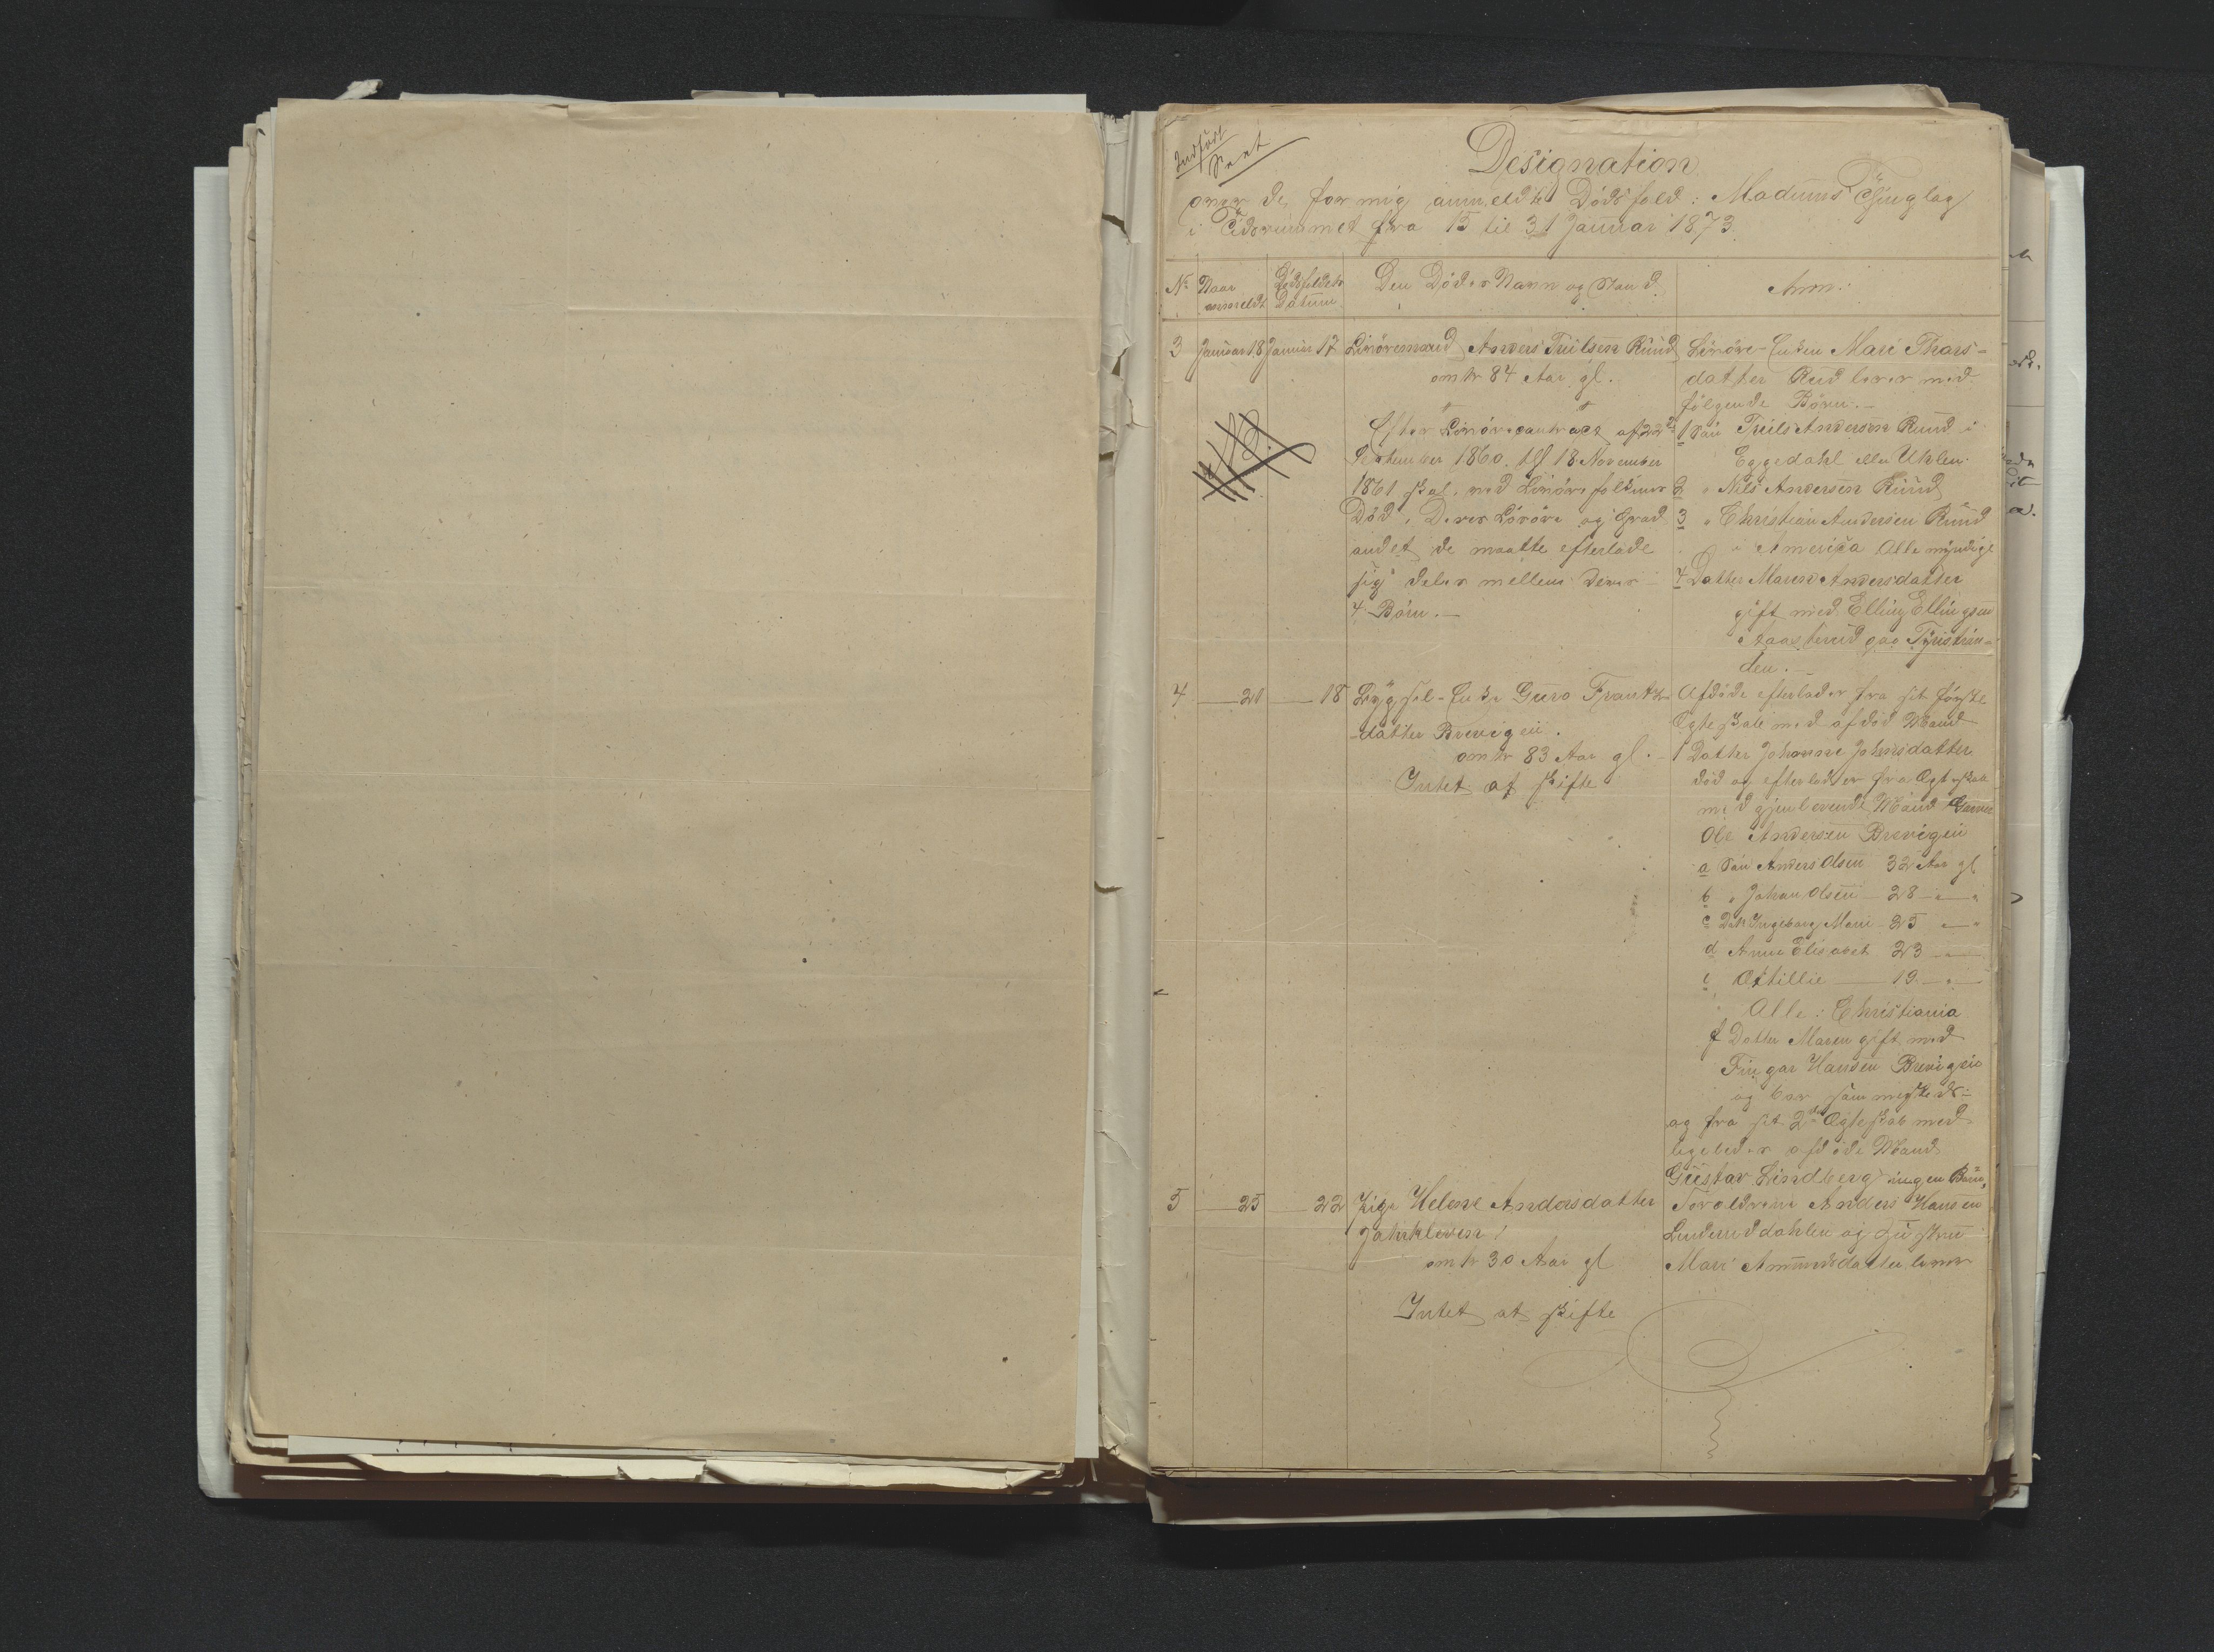 Indført
Designation
over de for mig anmeldte Dødsfald i Modums Thinglag
i Tidsrummet fra 15 til 31 Januar 1873.
No Naar anmeldt Dødsfaldets Datum Den Dødes Navn og Stand Anm:
3 Januar 18 Januar 17 Livøremand Anders Truilsen Ruud
omtr 84 Aar gl.
Efter Livørecontract af 22de
September 1860, tlf 18 November
1861 skal, ved Livørefolkenes
Død, Deres Livøre og hvad
andet de maatte efterlade
sig deles mellem deres
4 Børn.—
Livøre-Enken Mari Thors=
datter Rud lever med
følgende Børn.—
1 Søn Truils Andersen Ruud i
Eggedahl eller Uhlen.
2 " Nils Andersen Ruud
3 " Christian Andersen Ruud
i America Alle myndige
4 Datter Maren Andersdatter
gift med Elling Ellingsen
paa Tyristran=
den.—
4 — 21 — 18 Bygsel-Enke Guro Frants
datter Brevigen.
omtr 83 Aar gl.
Intet at skifte
Afdøde efterlader fra sit første
Ægteskab med afdød Mand
1 Datter Johanne Johnsdatter
død og efterlader fra Ægteskab
med gjenlevende Mand
Ole Andersen Brevigen
a Søn Anders Olsen 32 Aar gl
b " Johan Olsen — 28 — " — "
c Datt Ingeborg Marie 25 " — "
d Anne Elisabet 23 — " —
e Ottillie — 19 — " —
Alle i Christiania
f Datter Maren gift med
Hansen Brevigen
og bor sammesteds—
og fra sit 2det Ægteskab med
ligeledes afdøde Mand
Gustav Lindberg ingen Børn.
5 — 25 — 22 Pige Helene Andersdatter
omtr 30 Aar gl
Intet at skifte
Forældrene Anders Hansen
og Hustru
Mari Amundsdatter lever